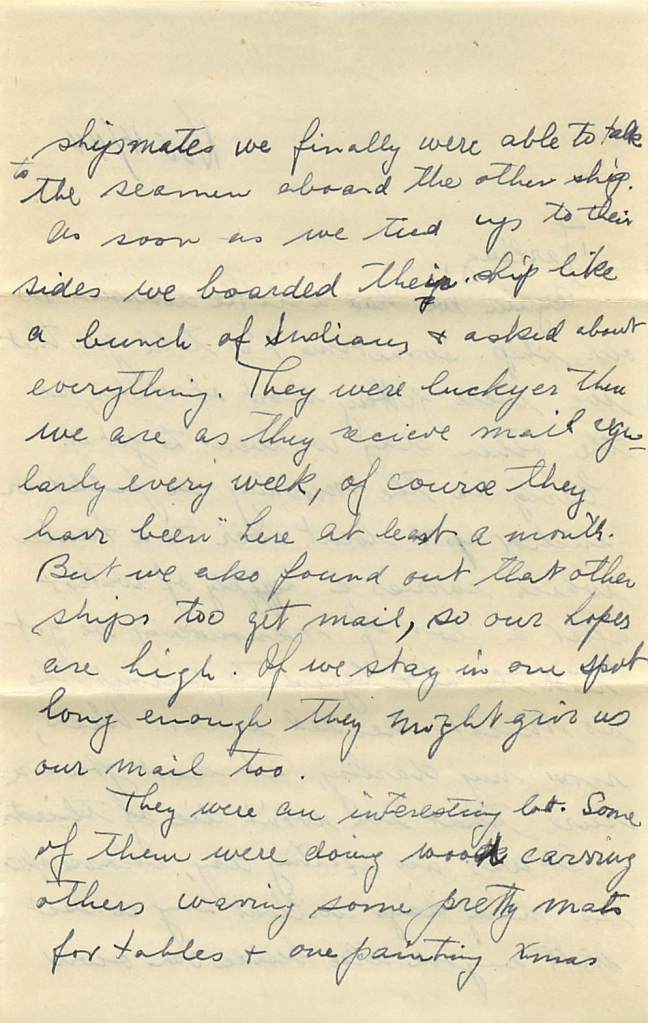 shipmates we finally were able to talk
to the seamen aboard the other ship.
As soon as we tied up to their
sides we boarded their ship like
a bunch of Indians & asked about
everything. They were luckyer than
we are as they recieve mail regu-
larly every week, of course they
have been here at least a month.
But we also found out that other
ships too get mail, so our hopes
are high. If we stay in one spot
long enough they might give us
our mail too.
They were an interesting lot. Some
of them were doing wood carving
others waving some pretty mats
for tables & one painting Xmas